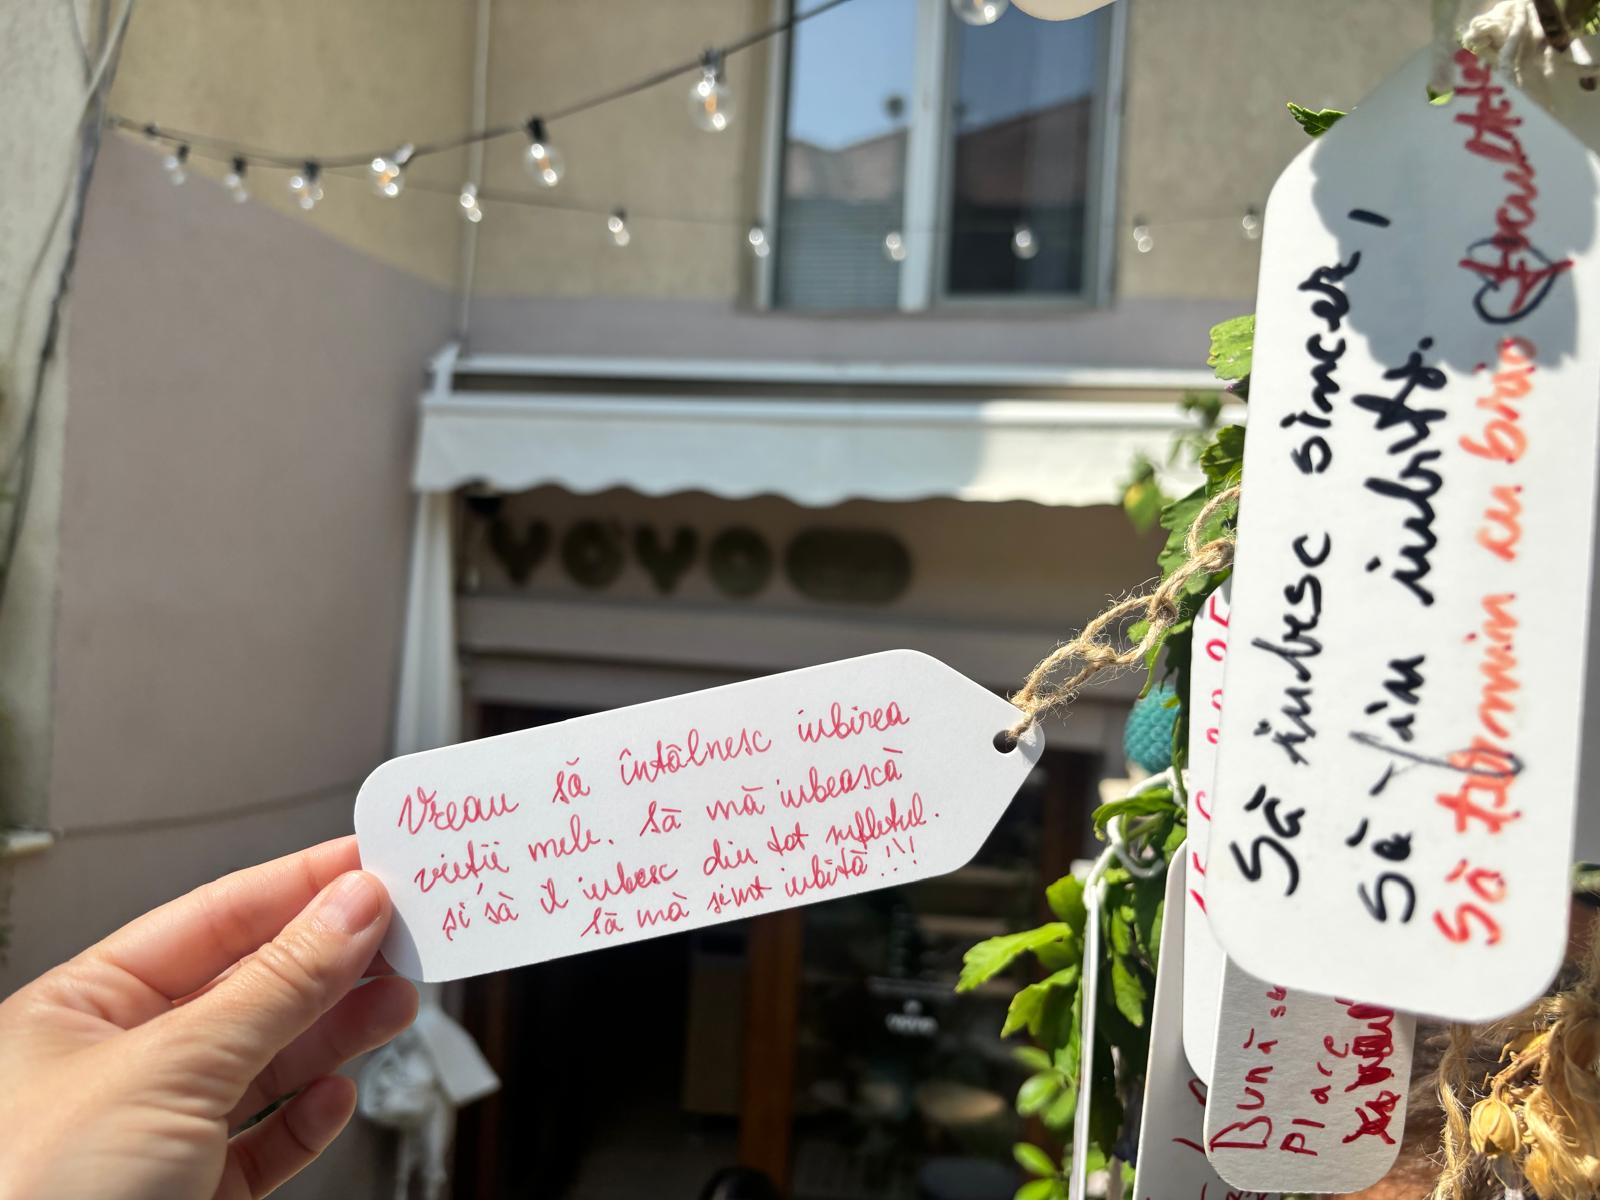 Vreau să întâlnesc iubirea
vieții mele. Să mă iubească
și să îl iubesc din tot sufletul.
Să mă simt iubită !!!
Să iubesc sincer,
Să fiu iubită.
Să termin cu brio facultatea
VOYO
Bună
place